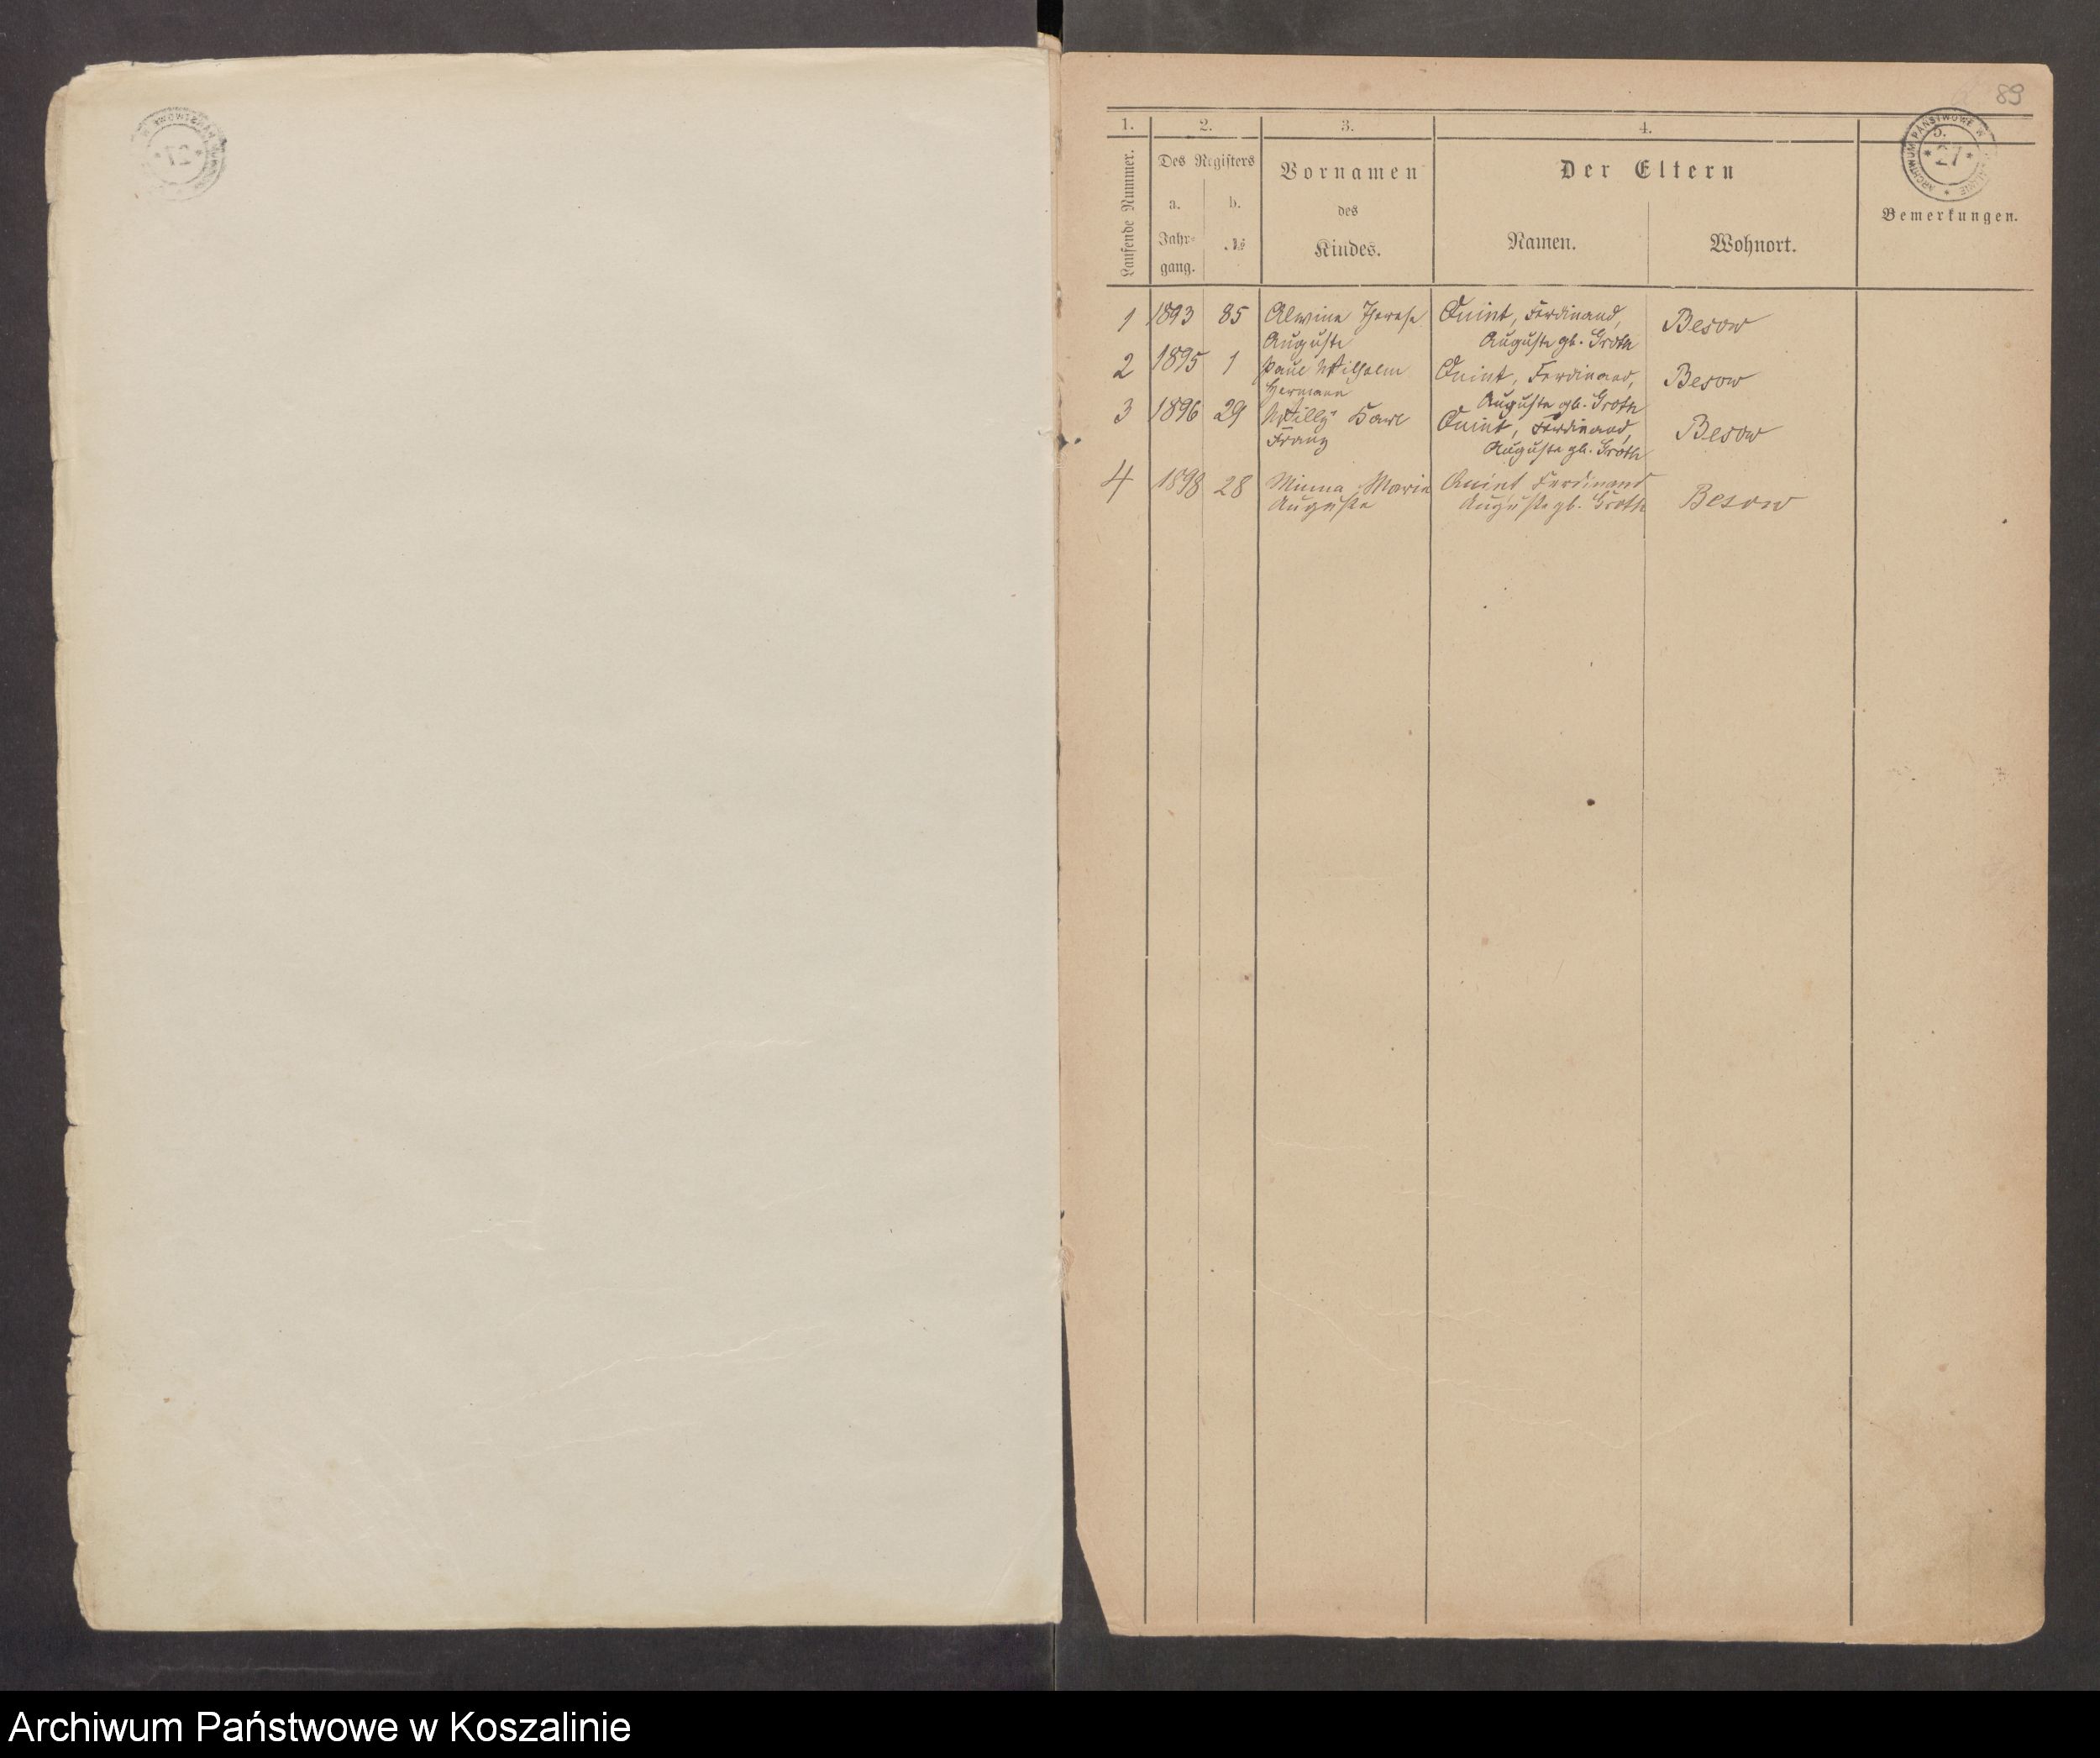 89
1. 2. 3. 4. 5.
Laufende Nummer.
Des Registers
a. b.
Jahr-
gang.
№
Vornamen
des
Kindes.
Der Eltern
Namen. Wohnort.
Bemerkungen.
ARCHIWUM PAŃSTWOWE W
* 27 *
1 1893 85 Alwine Therese Quint, Ferdinand, Besow
Auguste Auguste gb. Groth
2 1895 1 Paul Wilhelm Quint, Ferdinand, Besow
Hermann Auguste gb. Groth
3 1896 29 Willy Karl Quint, Ferdinand, Besow
Franz Auguste gb. Groth
4 1898 28 Minna Marie Quint Ferdinand Besow
Auguste Auguste gb. Groth
Archiwum Państwowe w Koszalinie